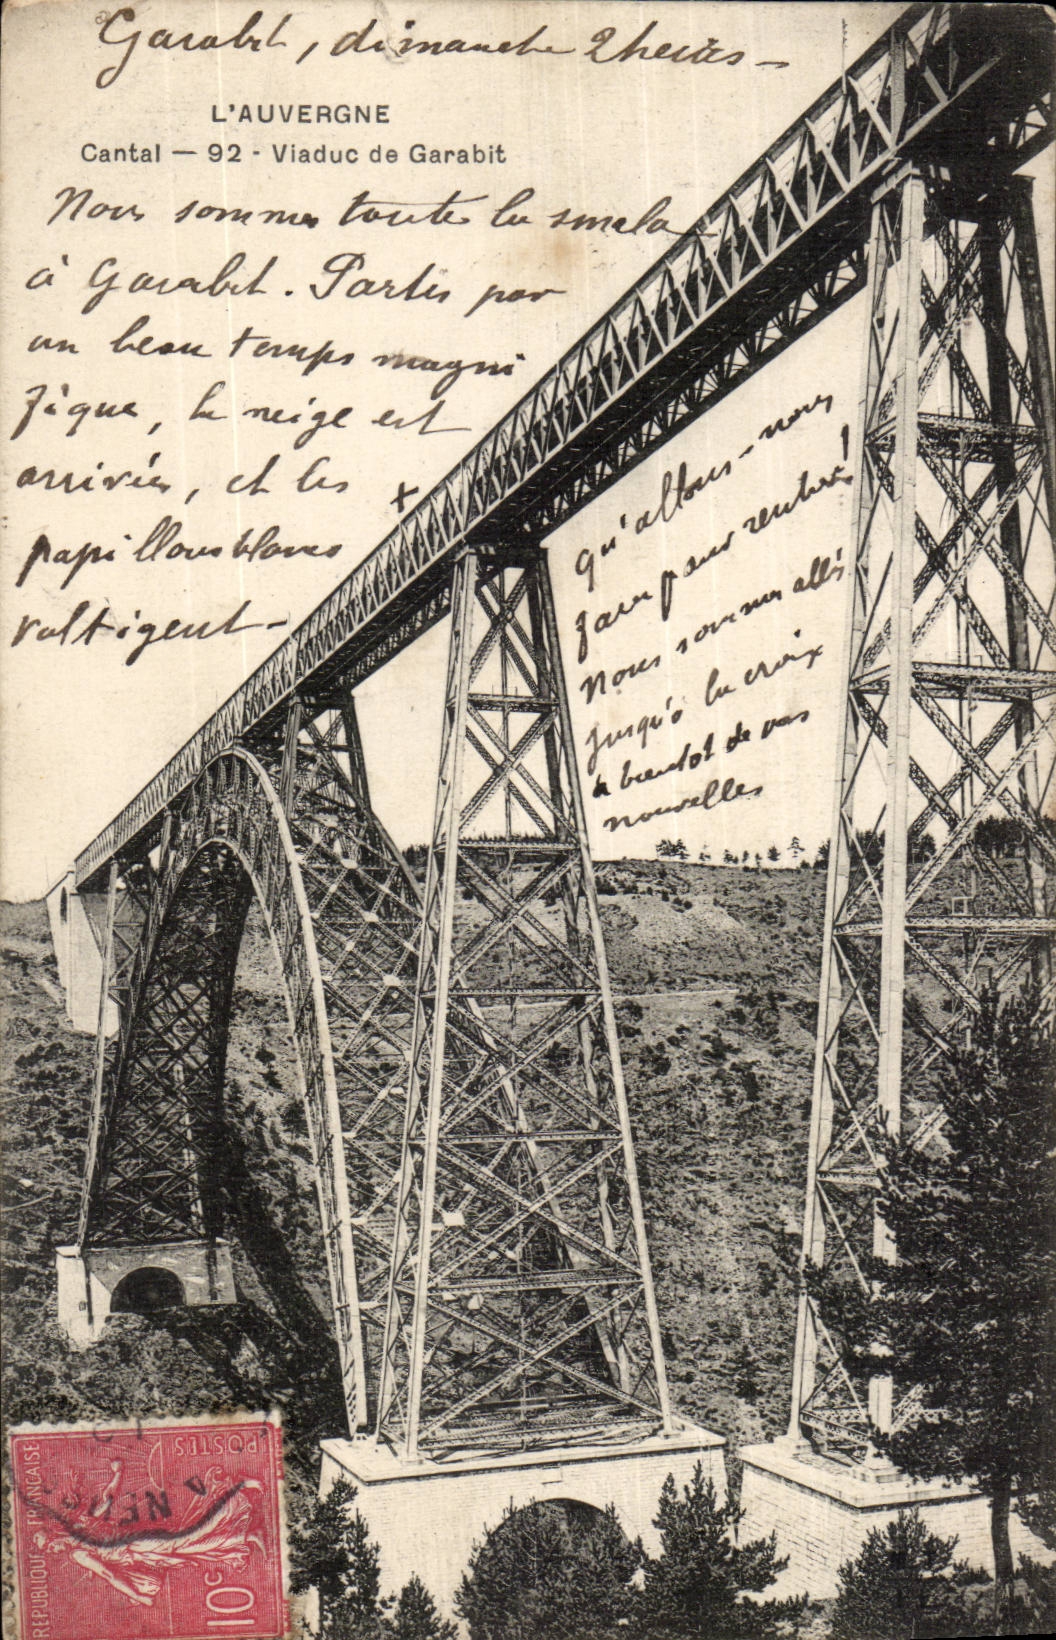 Garabit, dimanche 2 heures -
L'AUVERGNE
Cantal — 92 - Viaduc de Garabit
Nous sommes toute la smala
à Garabit. Partis par
un beau temps magni
fique, la neige est
arrivée, et les
papillons blancs
voltigent -
x
qu'allons-nous
faire pour rentrer!
Nous sommes allés
jusqu'à la croix
à bientôt de vos
nouvelles
POSTES
REPUBLIQUE FRANÇAISE
10c